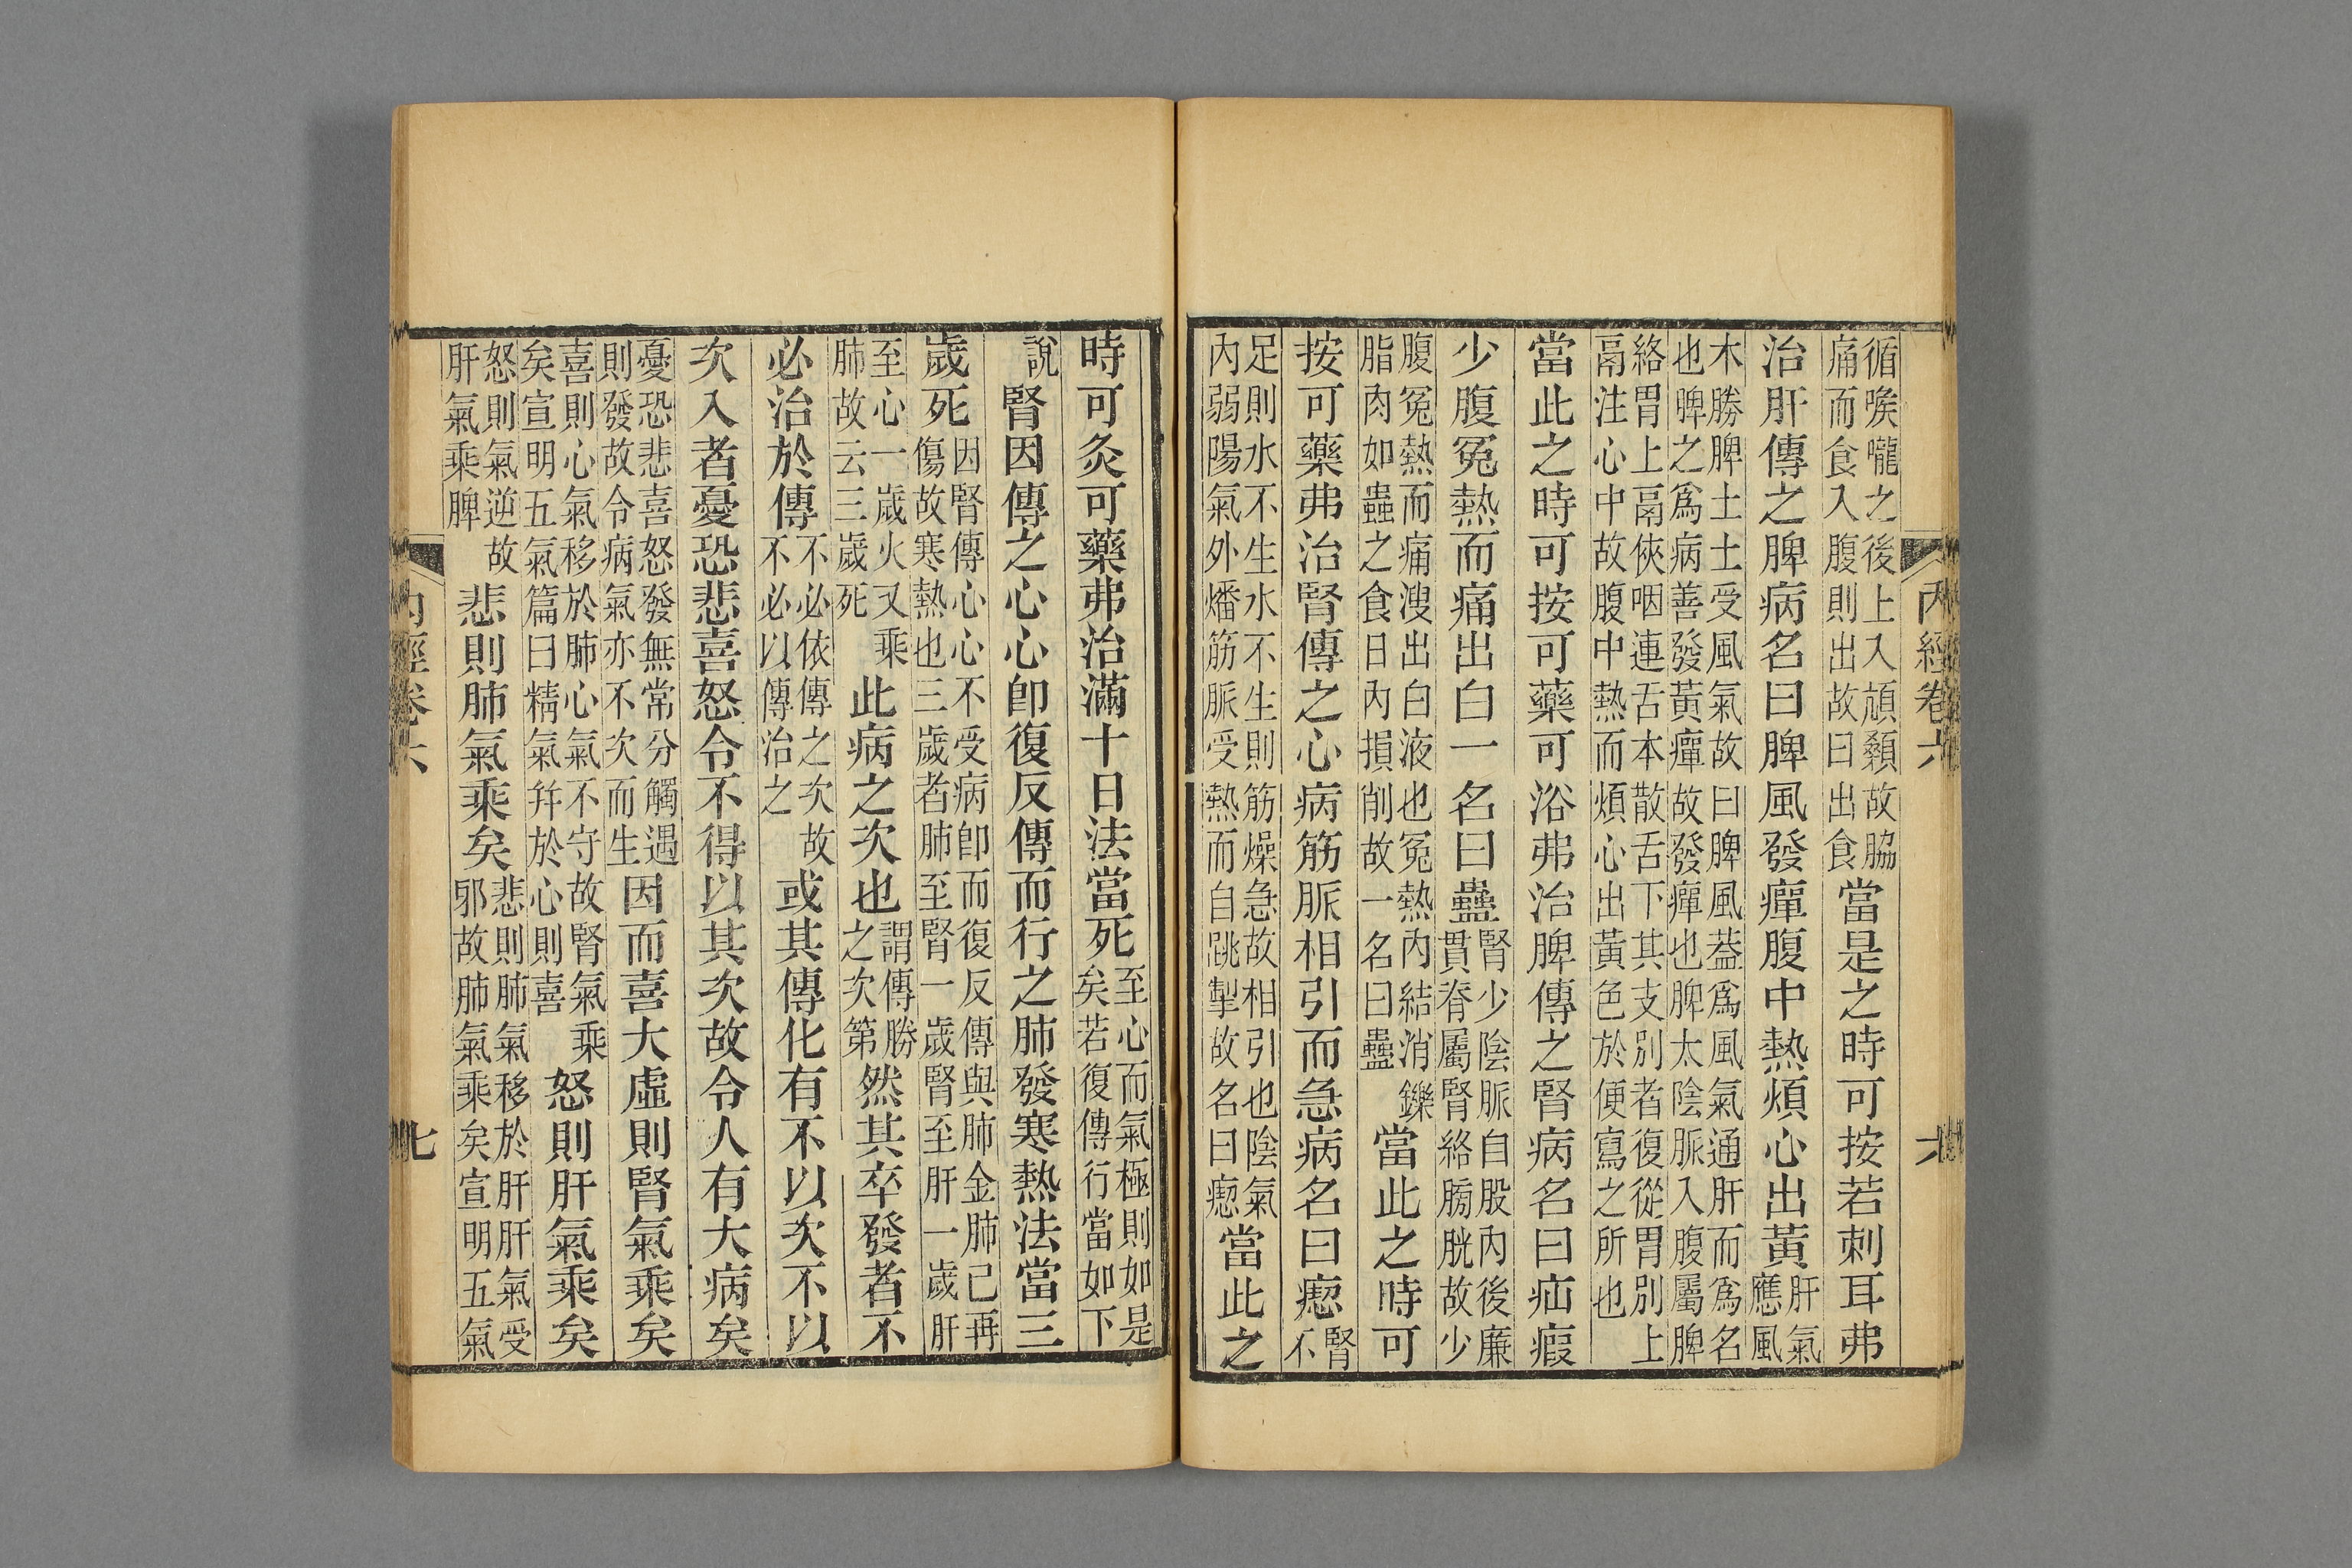 內經卷六 六
循喉嚨之後上入頏顙故脇
痛而食入腹則出故曰出食
當是之時可按若刺耳弗
治肝傳之脾病名曰脾風發癉腹中熱煩心出黃
肝氣
應風
木勝脾土土受風氣故曰脾風葢爲風氣通肝而爲名
也脾之爲病善發黃癉故發癉也脾太陰脈入腹屬脾
絡胃上鬲俠咽連舌本散舌下其支別者復從胃別上
鬲注心中故腹中熱而煩心出黃色於便寫之所也
當此之時可按可藥可浴弗治脾傳之腎病名曰疝瘕
少腹冤熱而痛出白一名曰蠱
腎少陰脈自股內後廉
貫脊屬腎絡膀胱故少
腹冤熱而痛溲出白液也冤熱內結消鑠
脂肉如蟲之食日內損削故一名曰蠱
當此之時可
按可藥弗治腎傳之心病筋脈相引而急病名曰瘛
腎
不
足則水不生水不生則筋燥急故相引也陰氣
內弱陽氣外燔筋脈受熱而自跳掣故名曰瘛
當此之
時可灸可藥弗治滿十日法當死
至心而氣極則如是
矣若復傳行當如下
說
腎因傳之心心卽復反傳而行之肺發寒熱法當三
歲死
因腎傳心心不受病卽而復反傳與肺金肺已再
傷故寒熱也三歲者肺至腎一歲腎至肝一歲肝
至心一歲火又乘
肺故云三歲死
此病之次也
謂傳勝
之次第
然其卒發者不
必治於傳
不必依傳之次故
不必以傳治之
或其傳化有不以次不以
次入者憂恐悲喜怒令不得以其次故令人有大病矣
憂恐悲喜怒發無常分觸遇
則發故令病氣亦不次而生
因而喜大虛則腎氣乘矣
喜則心氣移於肺心氣不守故腎氣乘
矣宣明五氣篇曰精氣并於心則喜
怒則肝氣乘矣
怒則氣逆故
肝氣乘脾
悲則肺氣乘矣
悲則肺氣移於肝肝氣受
邪故肺氣乘矣宣明五氣
內經卷六 七